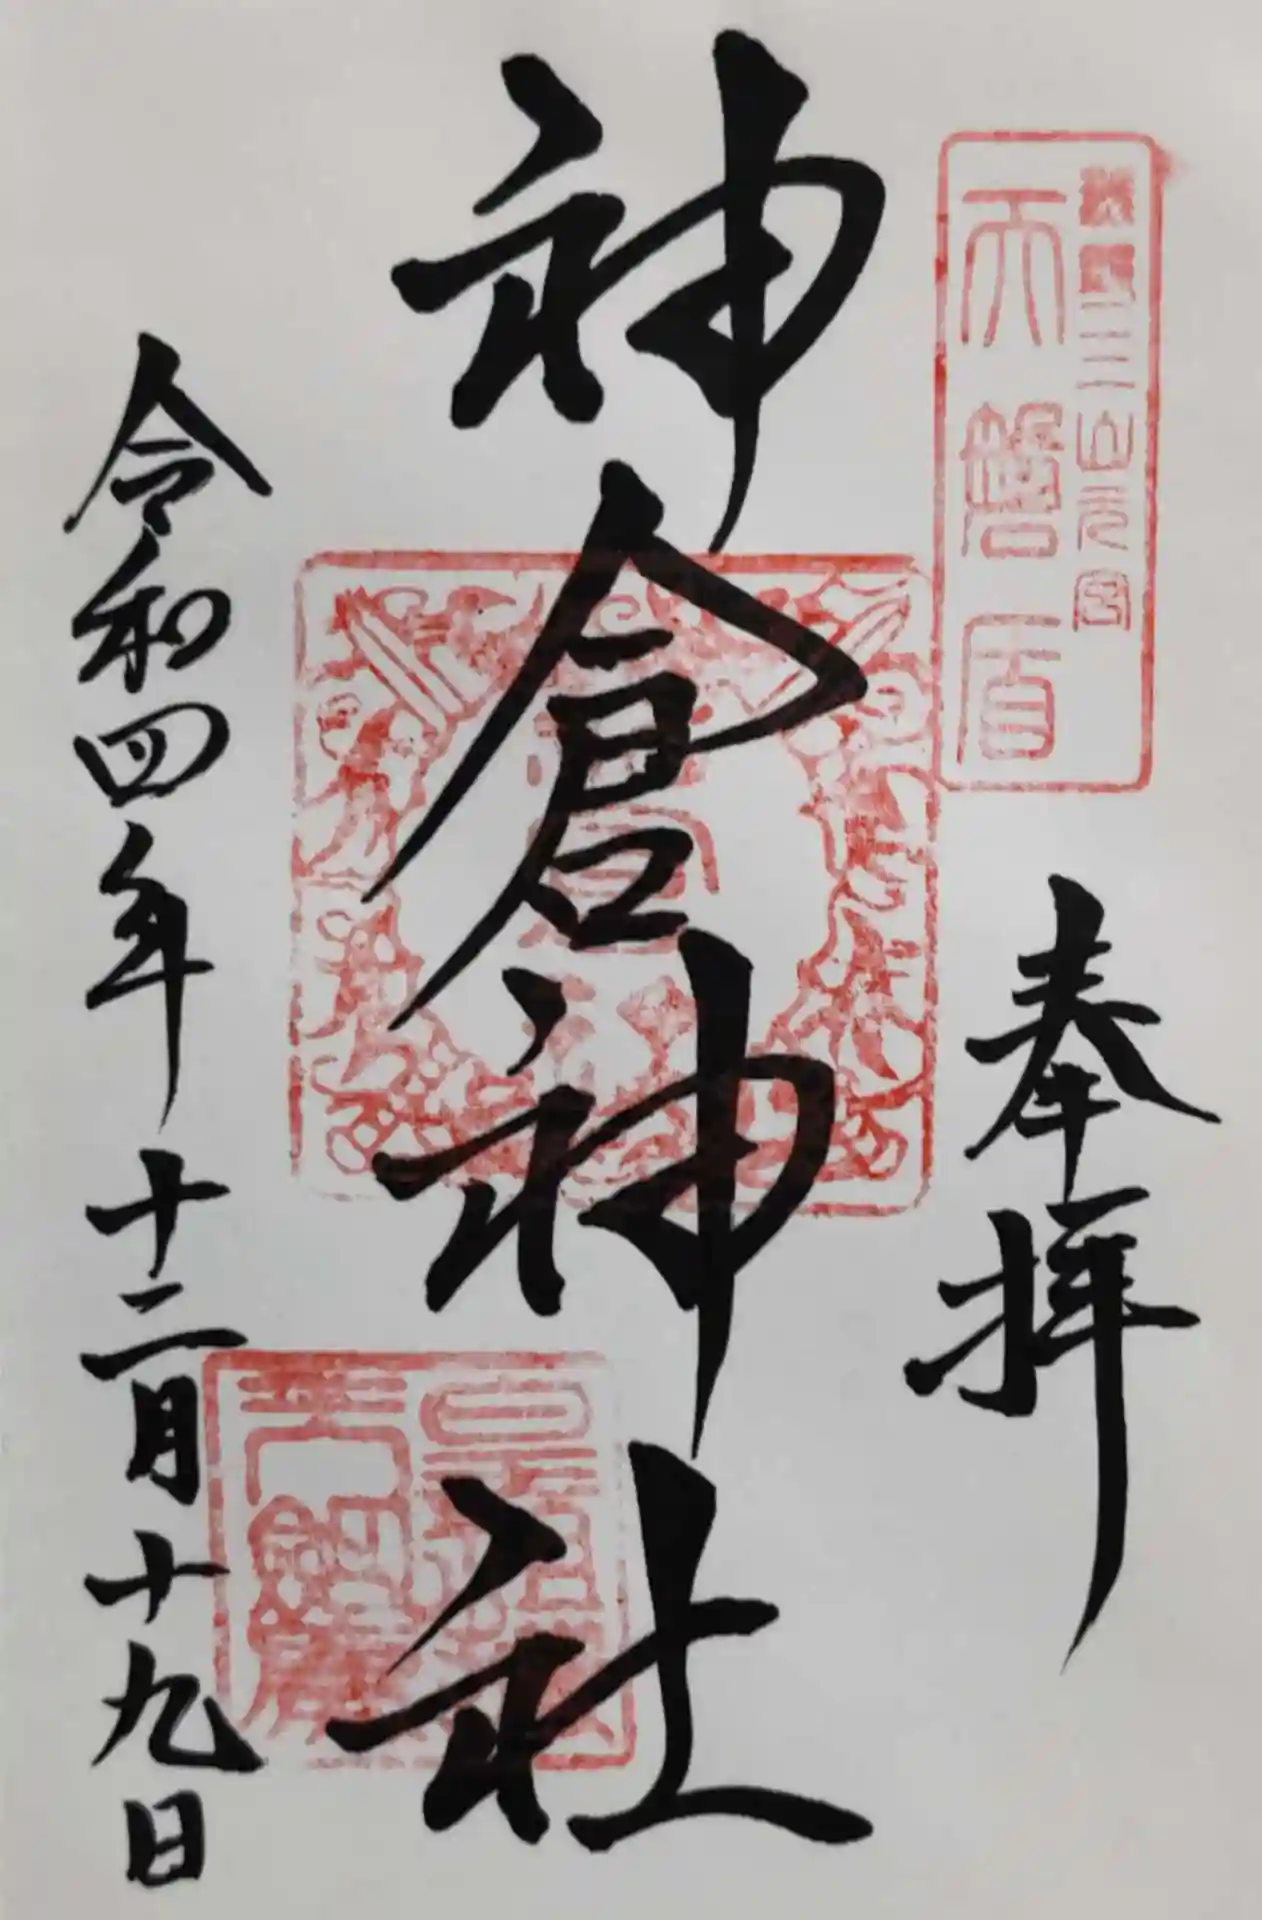 熊野三山元宮
天磐盾
奉拝
神倉神社
令和四年十二月十九日